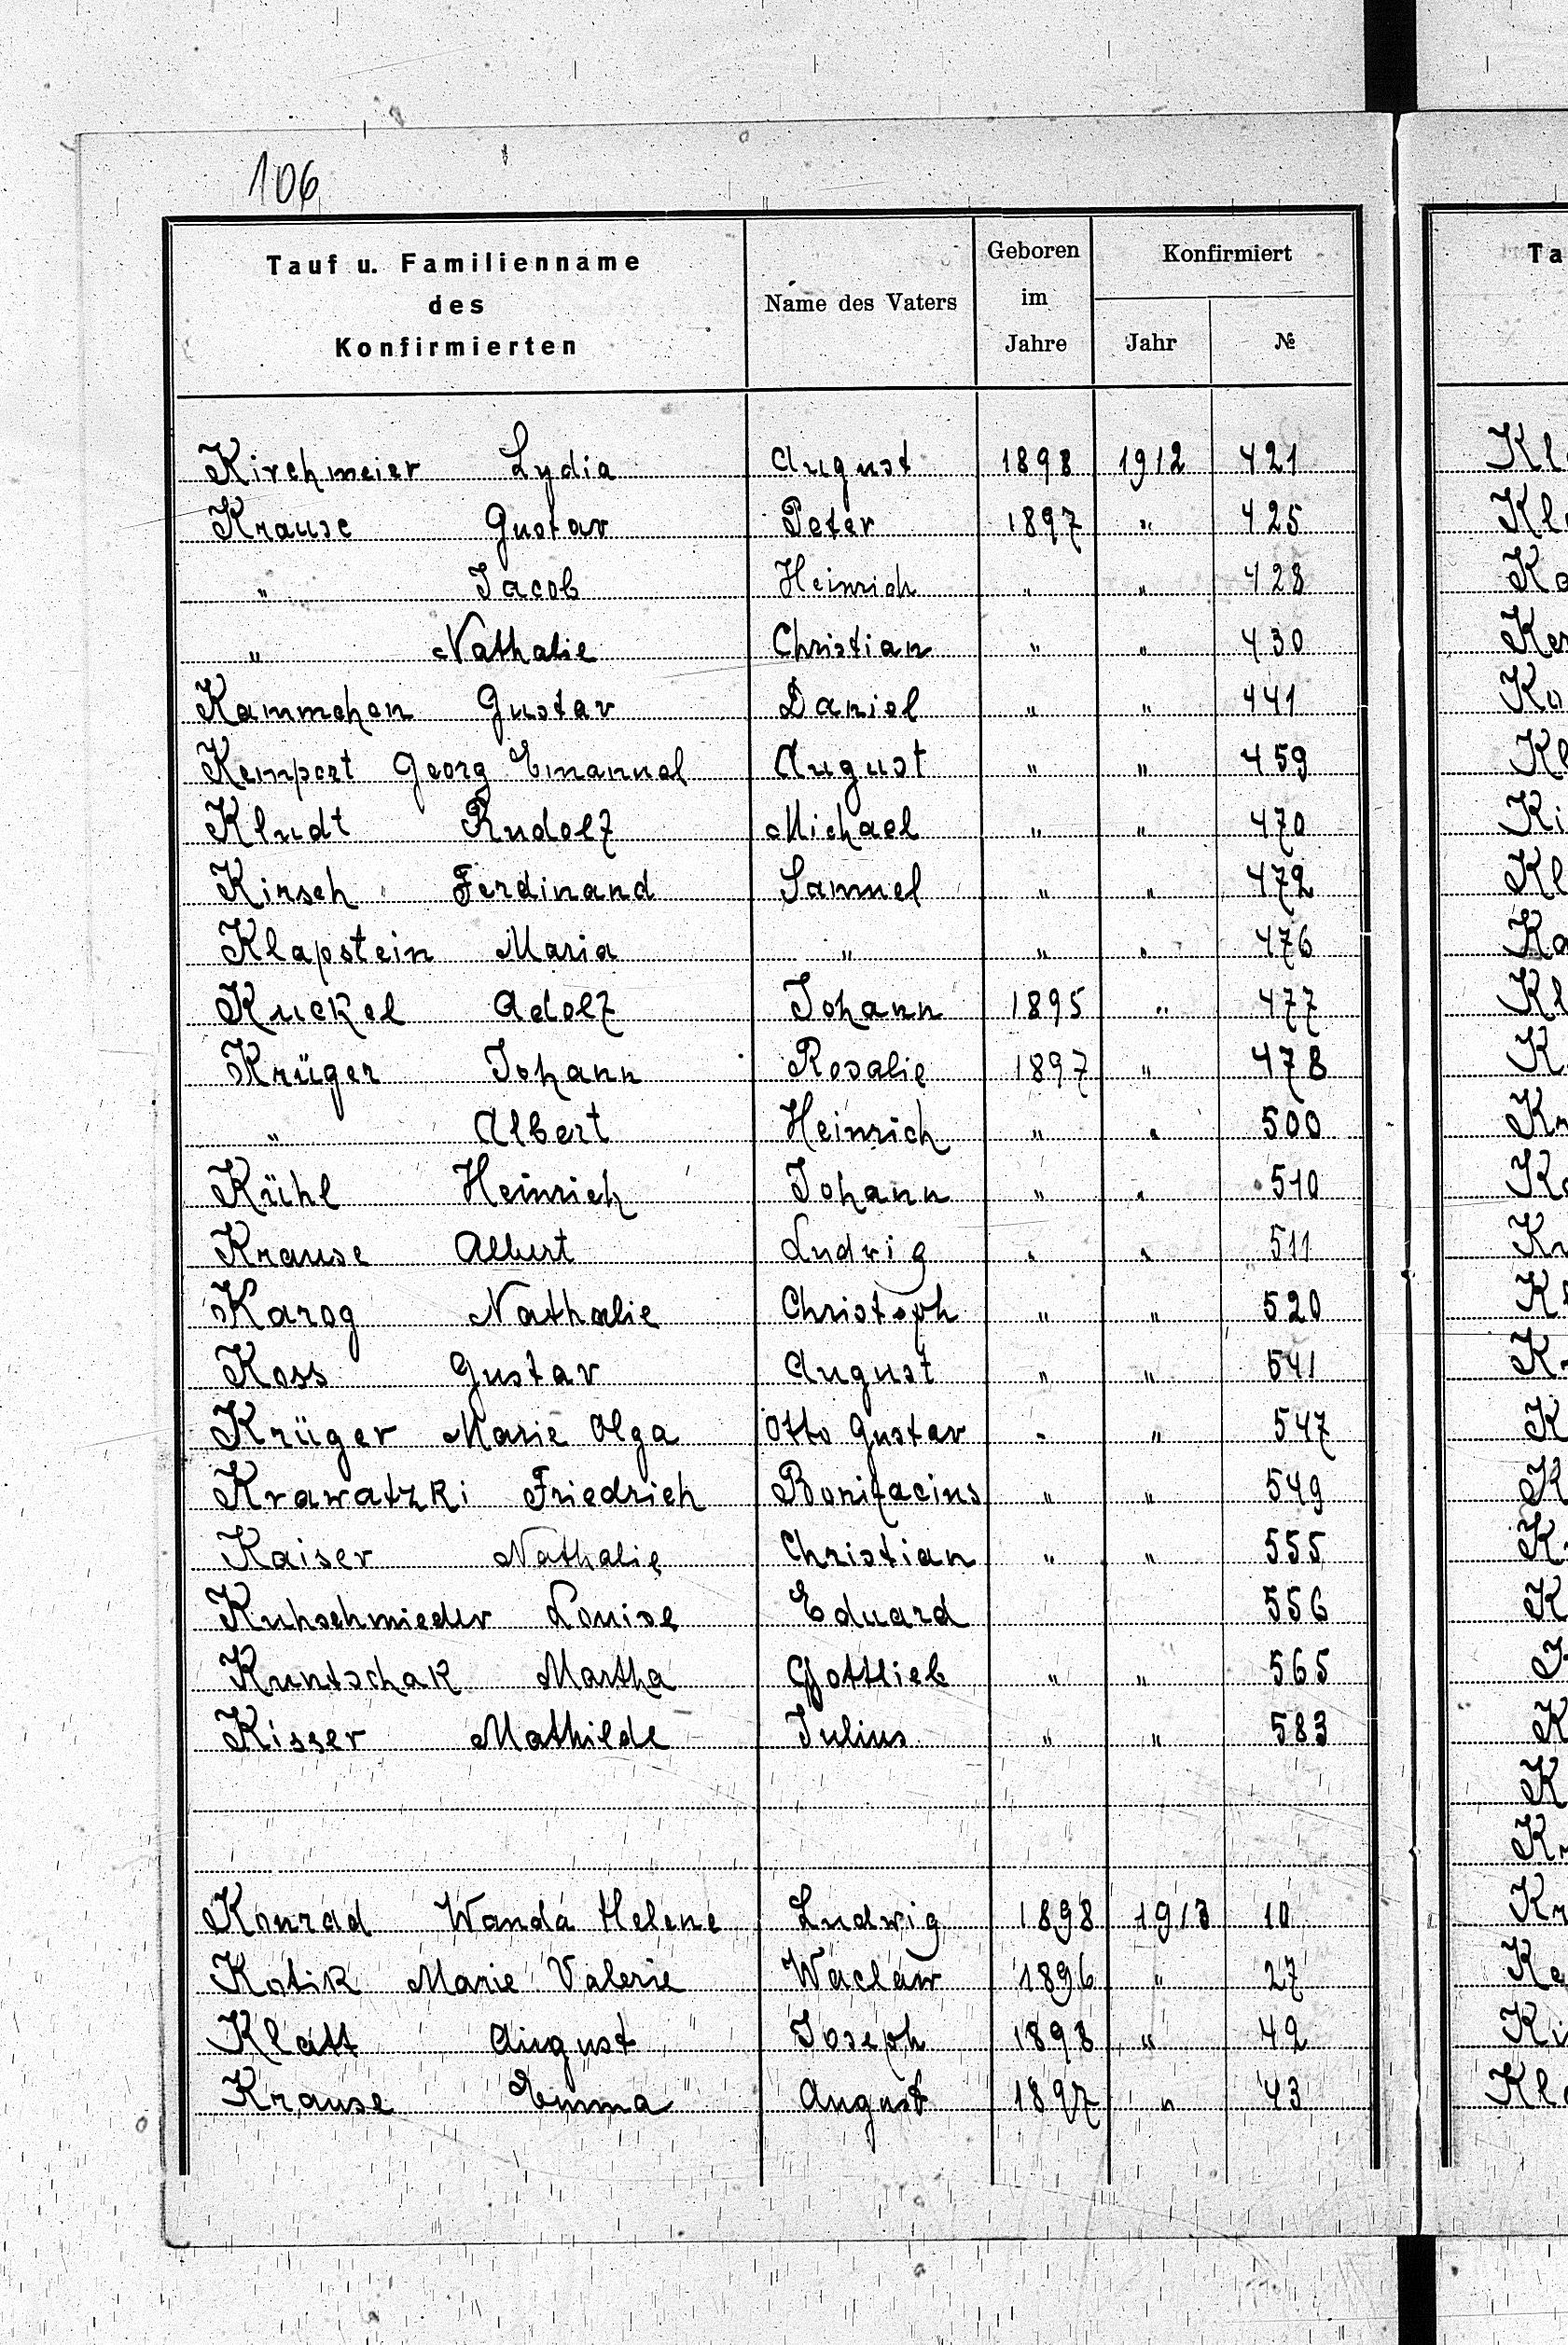 106
Tauf u. Familienname des Konfirmierten | Name des Vaters | Geboren im Jahre | Konfirmiert Jahr | №
Kirchmeier Lydia August 1898 1912 421
Krause Gustav Peter 1897 " 425
" Jacob Heinrich " " 428
" Nathalie Christian " " 430
Kammchen Gustav Daniel " " 441
Kempert Georg Emanuel August " " 459
Kludt Rudolf Michael " " 470
Kirsch Ferdinand Samuel " " 472
Klapstein Maria " " " 476
Kuckel Adolf Johann 1895 " 477
Krüger Johann Rosalie 1897 " 478
" Albert Heinrich " " 500
Kühl Heinrich Johann " " 510
Krause Albert Ludvig " " 511
Karog Nathalie Christoph " " 520
Koss Gustav August " " 541
Krüger Marie Olga Otto Gustav " " 547
Krawatzki Friedrich Bonifacius " " 549
Kaiser Nathalie Christian " " 555
Kuhschmieder Louise Eduard 556
Kuntschak Martha Gottlieb " " 565
Kisser Mathilde Julius " " 583
Konrad Wanda Helene Ludwig 1898 1913 10
Kotik Marie Valerie Waclaw 1896 " 27
Klatt August Joseph 1898 " 42
Krause Emma August 1897 " 43